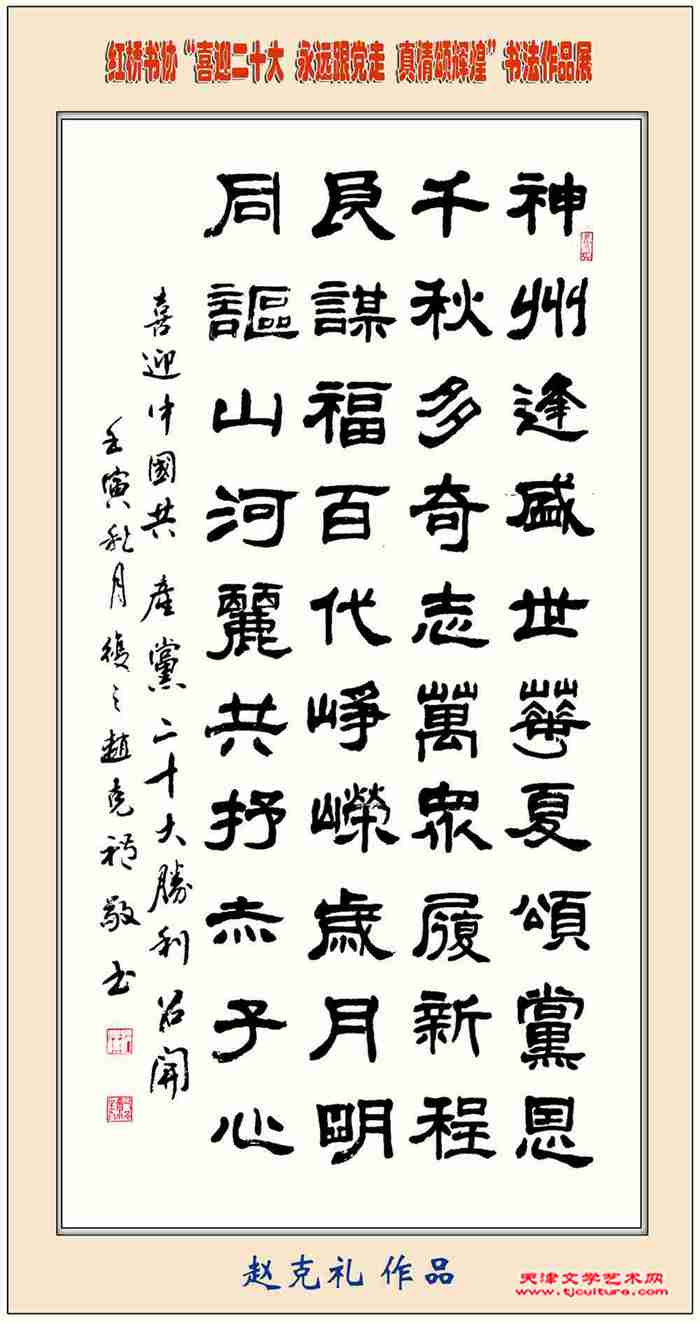 红桥书协“喜迎二十大 永远跟党走 真情颂辉煌”书法作品展
神州逢盛世華夏頌黨恩
千秋多奇志萬衆履新程
良謀福百代崢嶸歲月明
同謳山河麗共抒赤子心
喜迎中國共產黨二十大勝利召開
壬寅秋月復之趙克禮敬书
赵克礼 作品
天津文学艺术网
www.tjculture.com